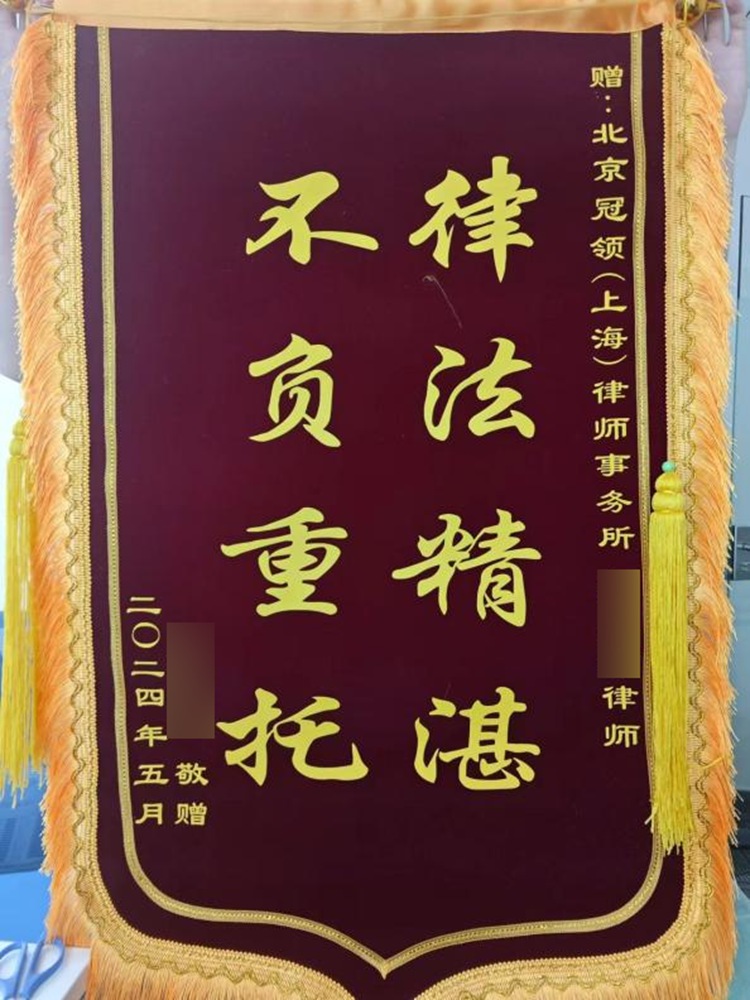 赠：北京冠领（上海）律师事务所 律师
律法精湛
不负重托
敬赠
二〇二四年五月